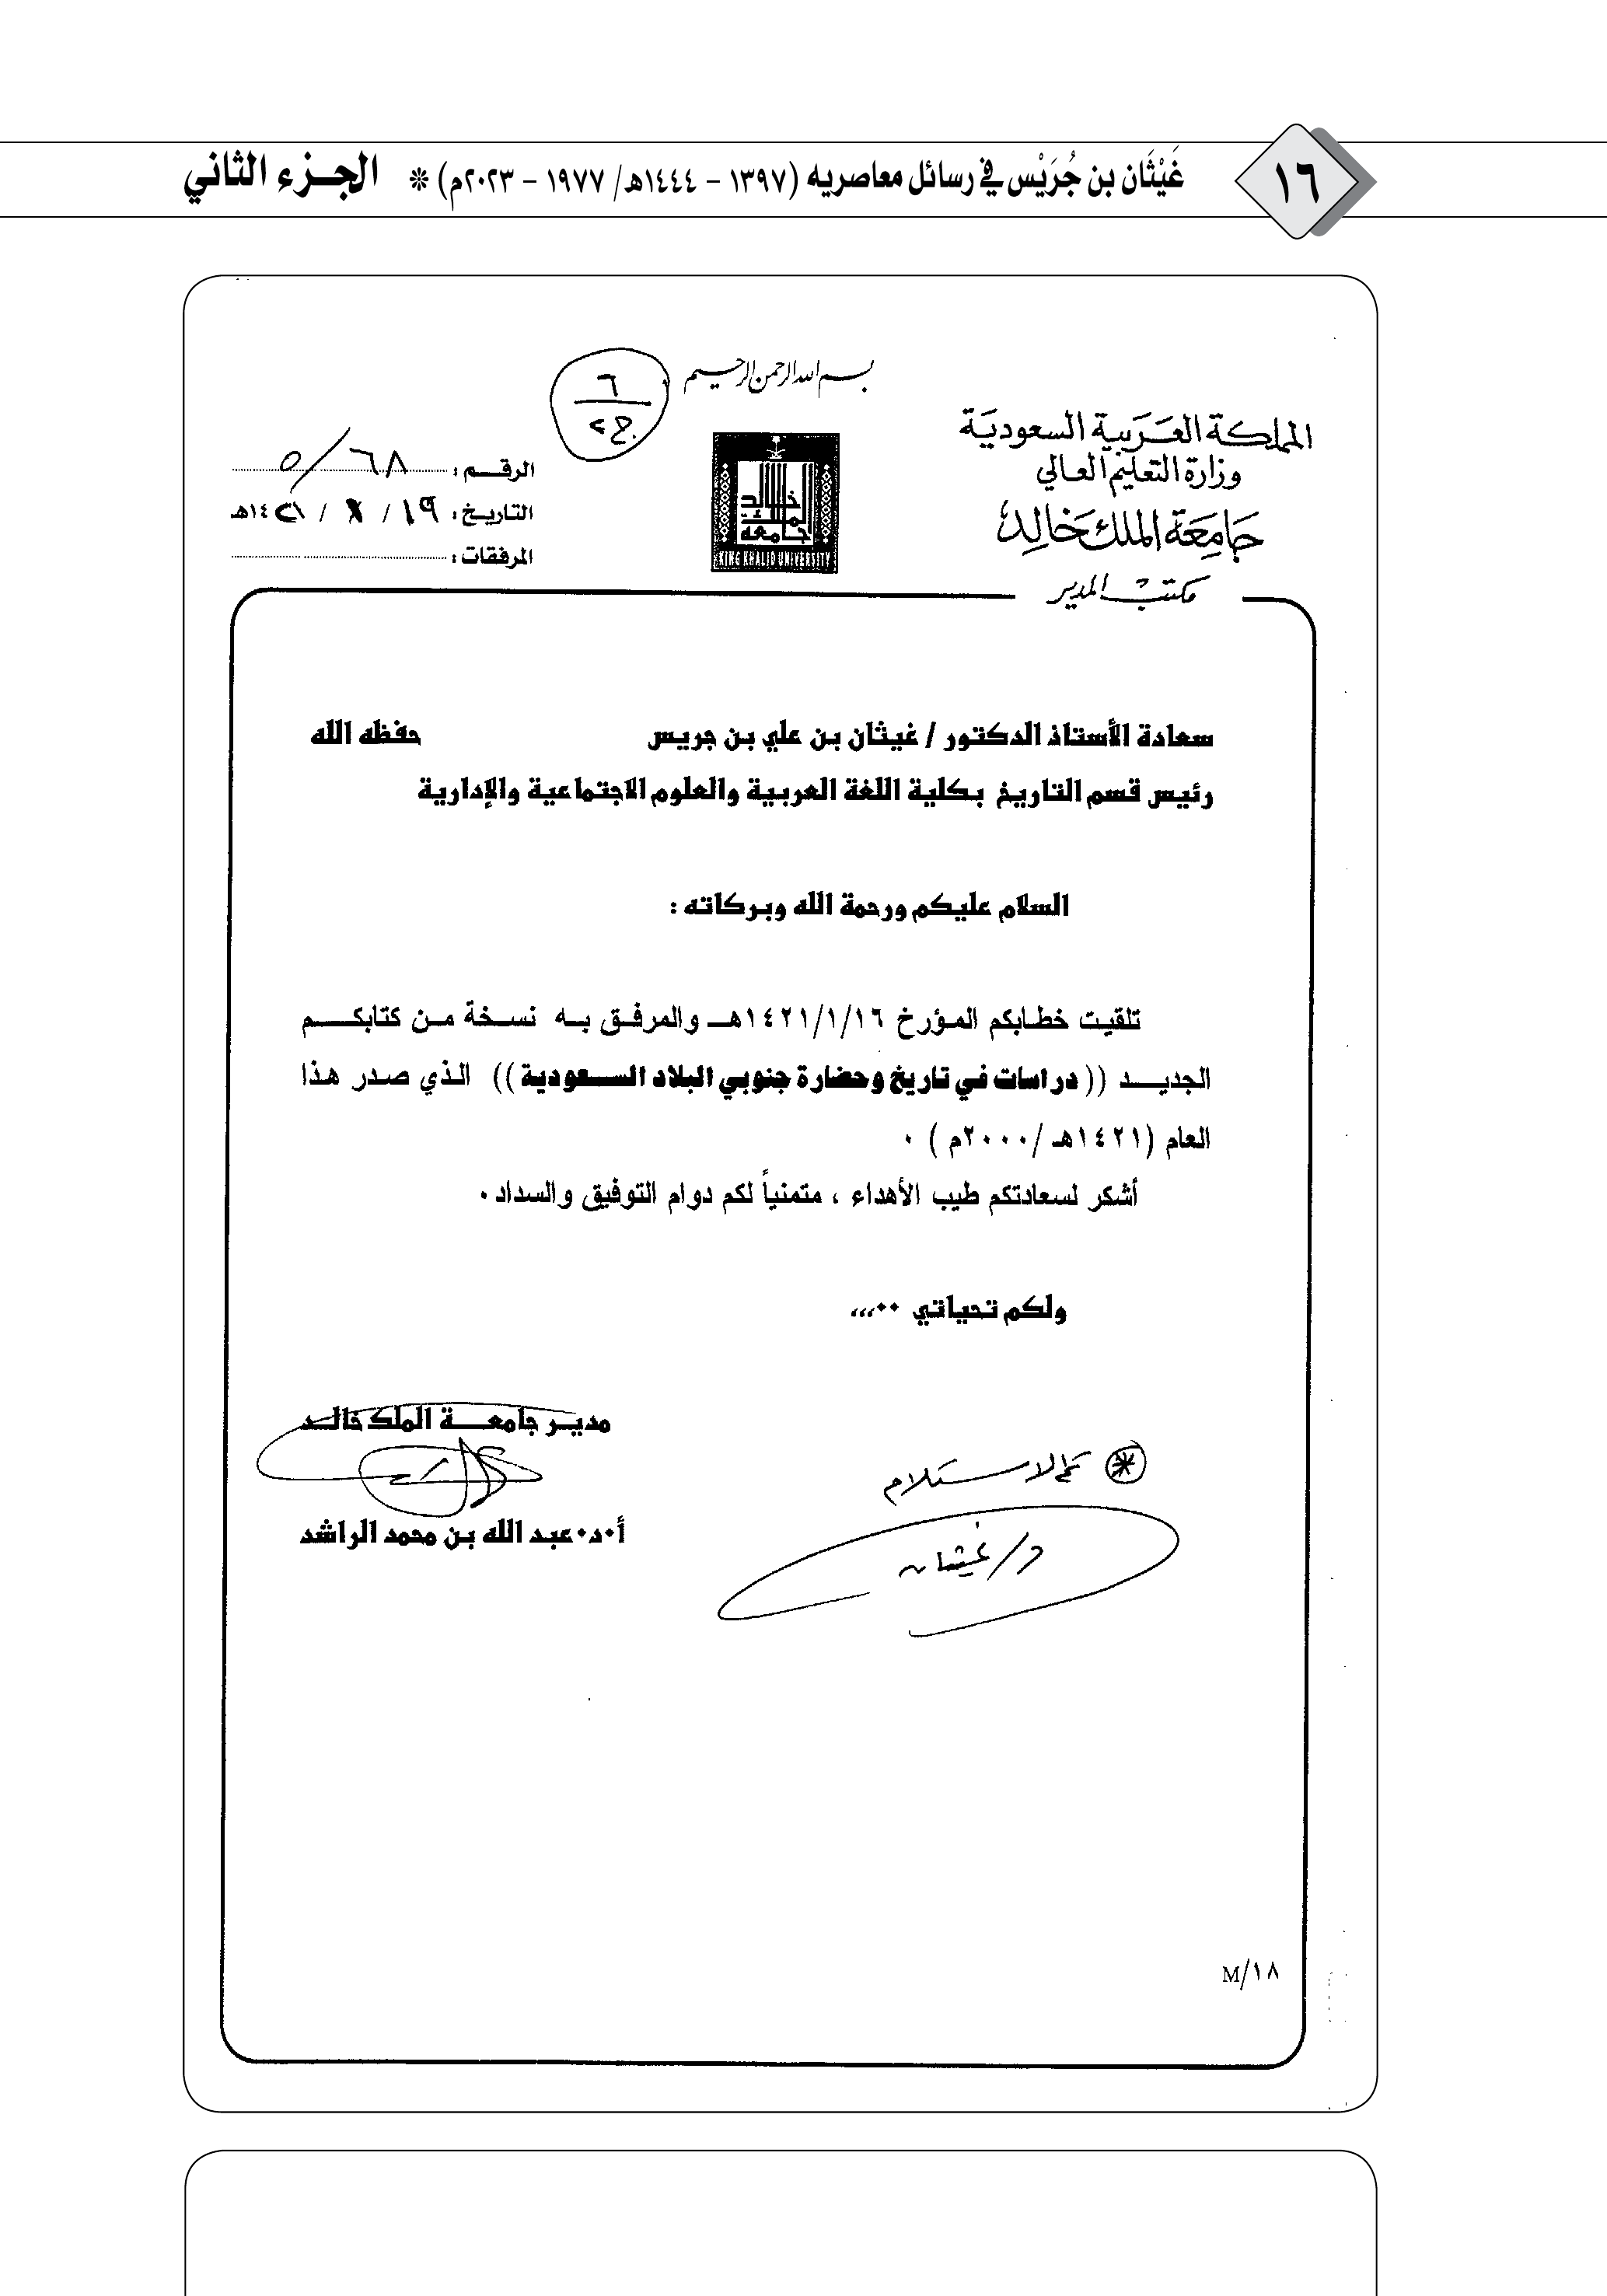 ١٦
غَيْثَان بن جُرَيْس في رسائل معاصريه (١٣٩٧ - ١٤٤٤هـ/ ١٩٧٧ - ٢٠٢٣م) * الجزء الثاني
بسم الله الرحمن الرحيم
٦
ج٢
المملكة العربية السعودية
وزارة التعليم العالي
جامعة الملك خالد
مكتب المدير
KING KHALID UNIVERSITY
جامعة الملك خالد
الرقم : ٥/٦٨
التاريخ : ١٩ / / ١٤٢١هـ
المرفقات :
سعادة الأستاذ الدكتور / غيثان بن علي بن جريس حفظه الله
رئيس قسم التاريخ بكلية اللغة العربية والعلوم الاجتماعية والإدارية
السلام عليكم ورحمة الله وبركاته :
تلقيت خطابكم المؤرخ ١٤٢١/١/١٦هـ والمرفق به نسخة من كتابكم
الجديد (( دراسات في تاريخ وحضارة جنوبي البلاد السعودية )) الذي صدر هذا
العام (١٤٢١هـ /٢٠٠٠م ) ٠
أشكر لسعادتكم طيب الأهداء ، متمنياً لكم دوام التوفيق والسداد ٠
ولكم تحياتي ٠٠،،،
مدير جامعة الملك خالد
أ٠د٠عبد الله بن محمد الراشد
* تم الاستلام
د/ غيثان
M/١٨